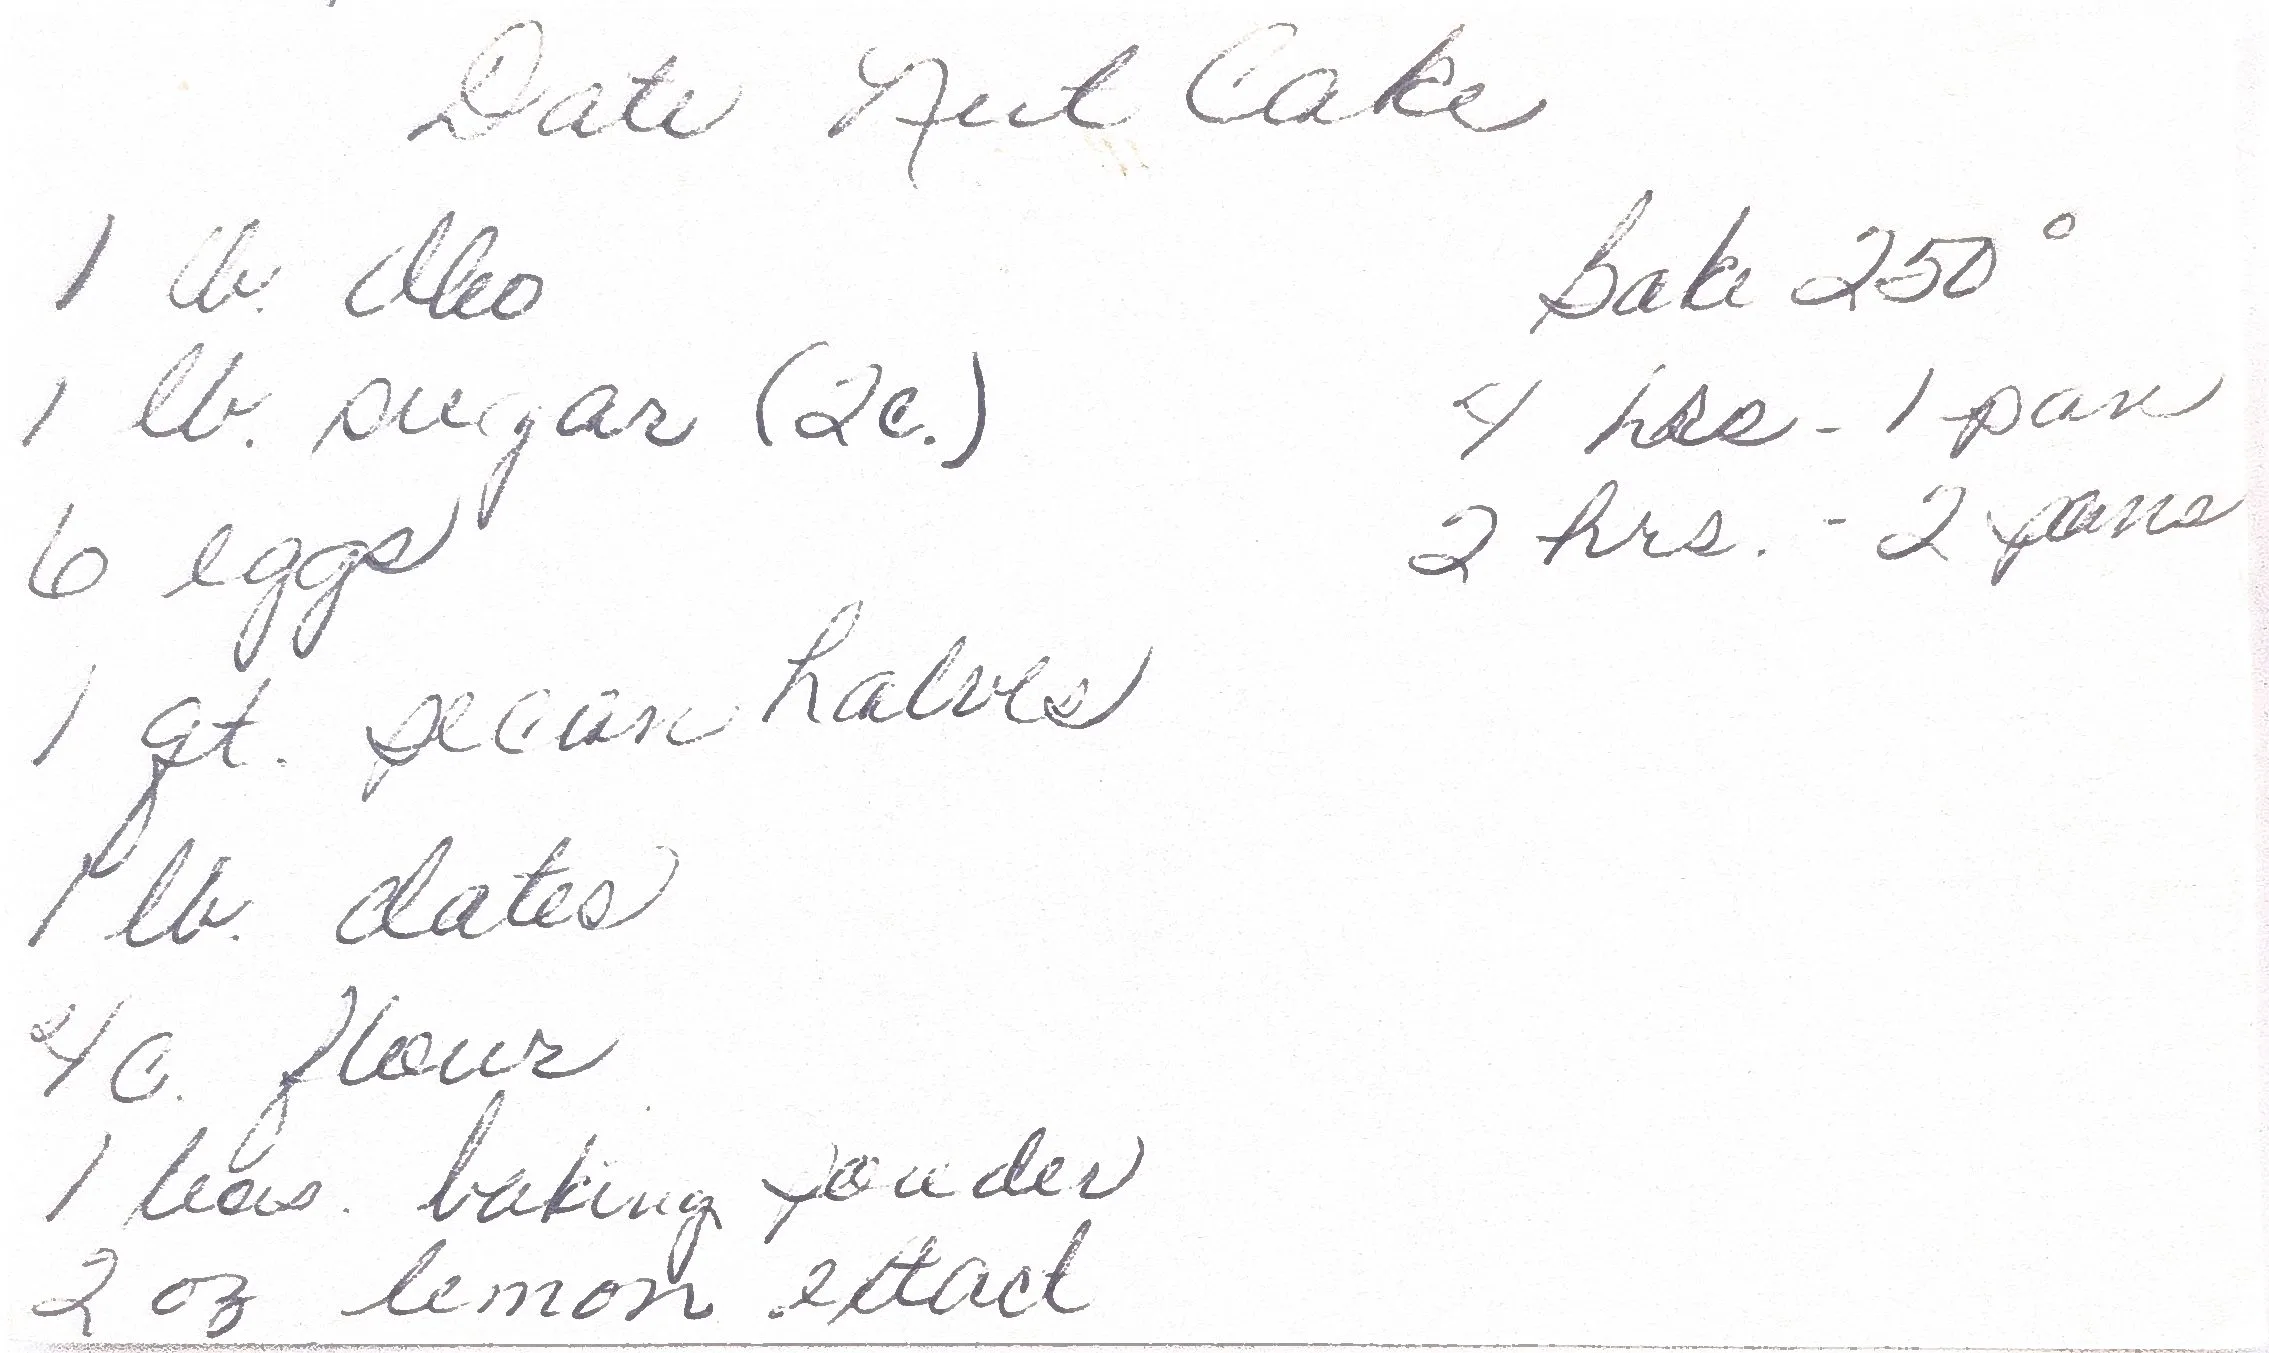 Date Nut Cake
1 lb. Oleo
1 lb. sugar (2c.)
6 eggs
1 qt. pecan halves
1 lb. dates
4c. flour
1 teas. baking powder
2 oz lemon extract
Bake 250°
4 hrs - 1 pan
2 hrs. - 2 pans